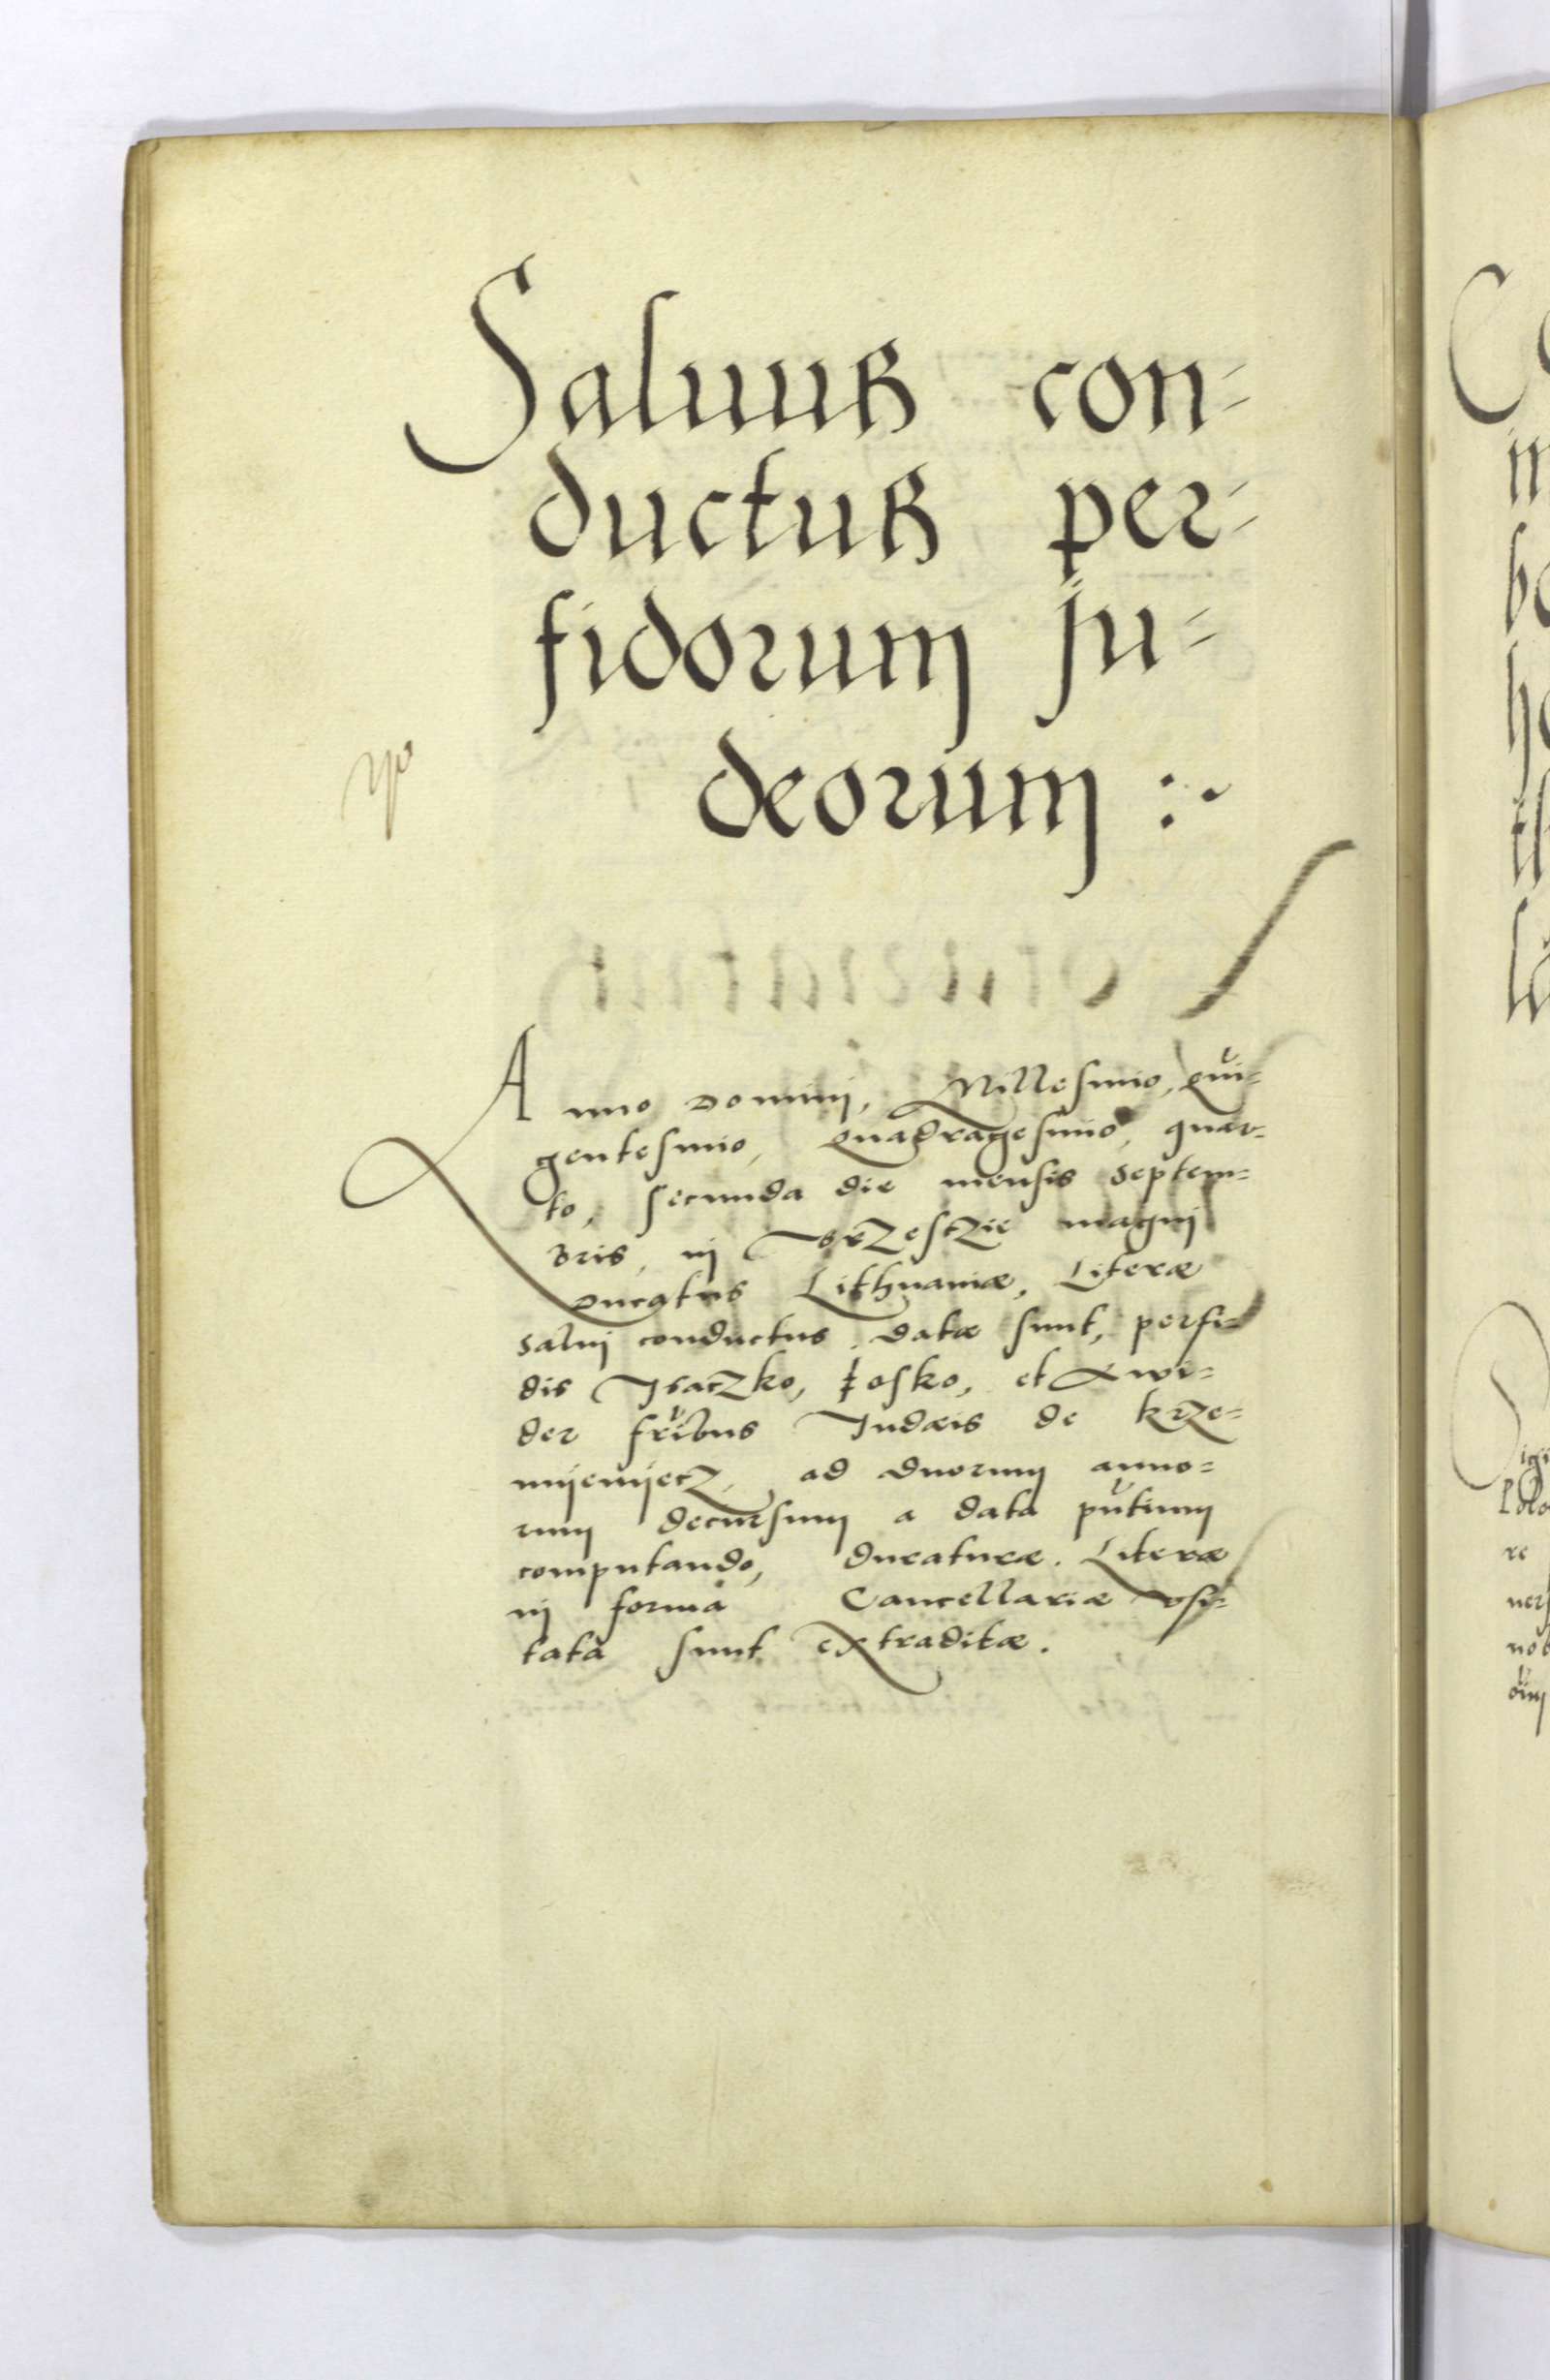 Saluus con-
ductus per-
fidorum Ju-
deorum :~
Anno Domini, Millesimo, qui-
gentesimo, quadragesimo, quar-
to, secunda die mensis Septem-
bris, in Brzesczie magni
Ducatus Lithuaniæ, Literæ
salui conductus, datæ sunt, perfi-
dis Isaczko, Josko, et
der fribus Iudæis de krze-
myenyecz, ad duorum anno-
rum decursum a data pntium
computando, duraturæ. Literæ
in forma Cancellariæ vsi-
tata sunt extraditæ.